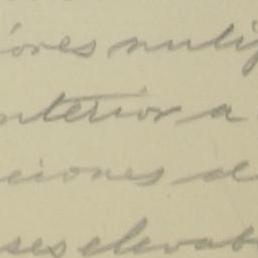 iones nulig
nterior a
ciones d
ses elevab